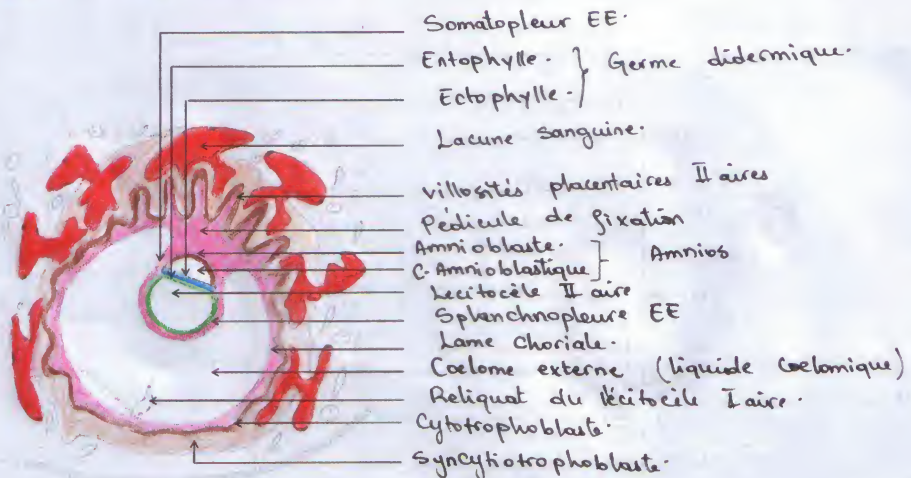 Somatopleur EE.
Entophylle. } Germe didermique.
Ectophylle.
Lacune sanguine.
villosités placentaires II aires
Pédicule de fixation
Amnioblaste. ] Amnios
C. Amnioblastique
Lecitocèle II aire
Sphenchnopleure EE
Lame choriale.
Coelome externe (liquide coelomique)
Reliquat du lécitocèle I aire.
Cytotrophoblaste.
Syncytiotrophoblaste.